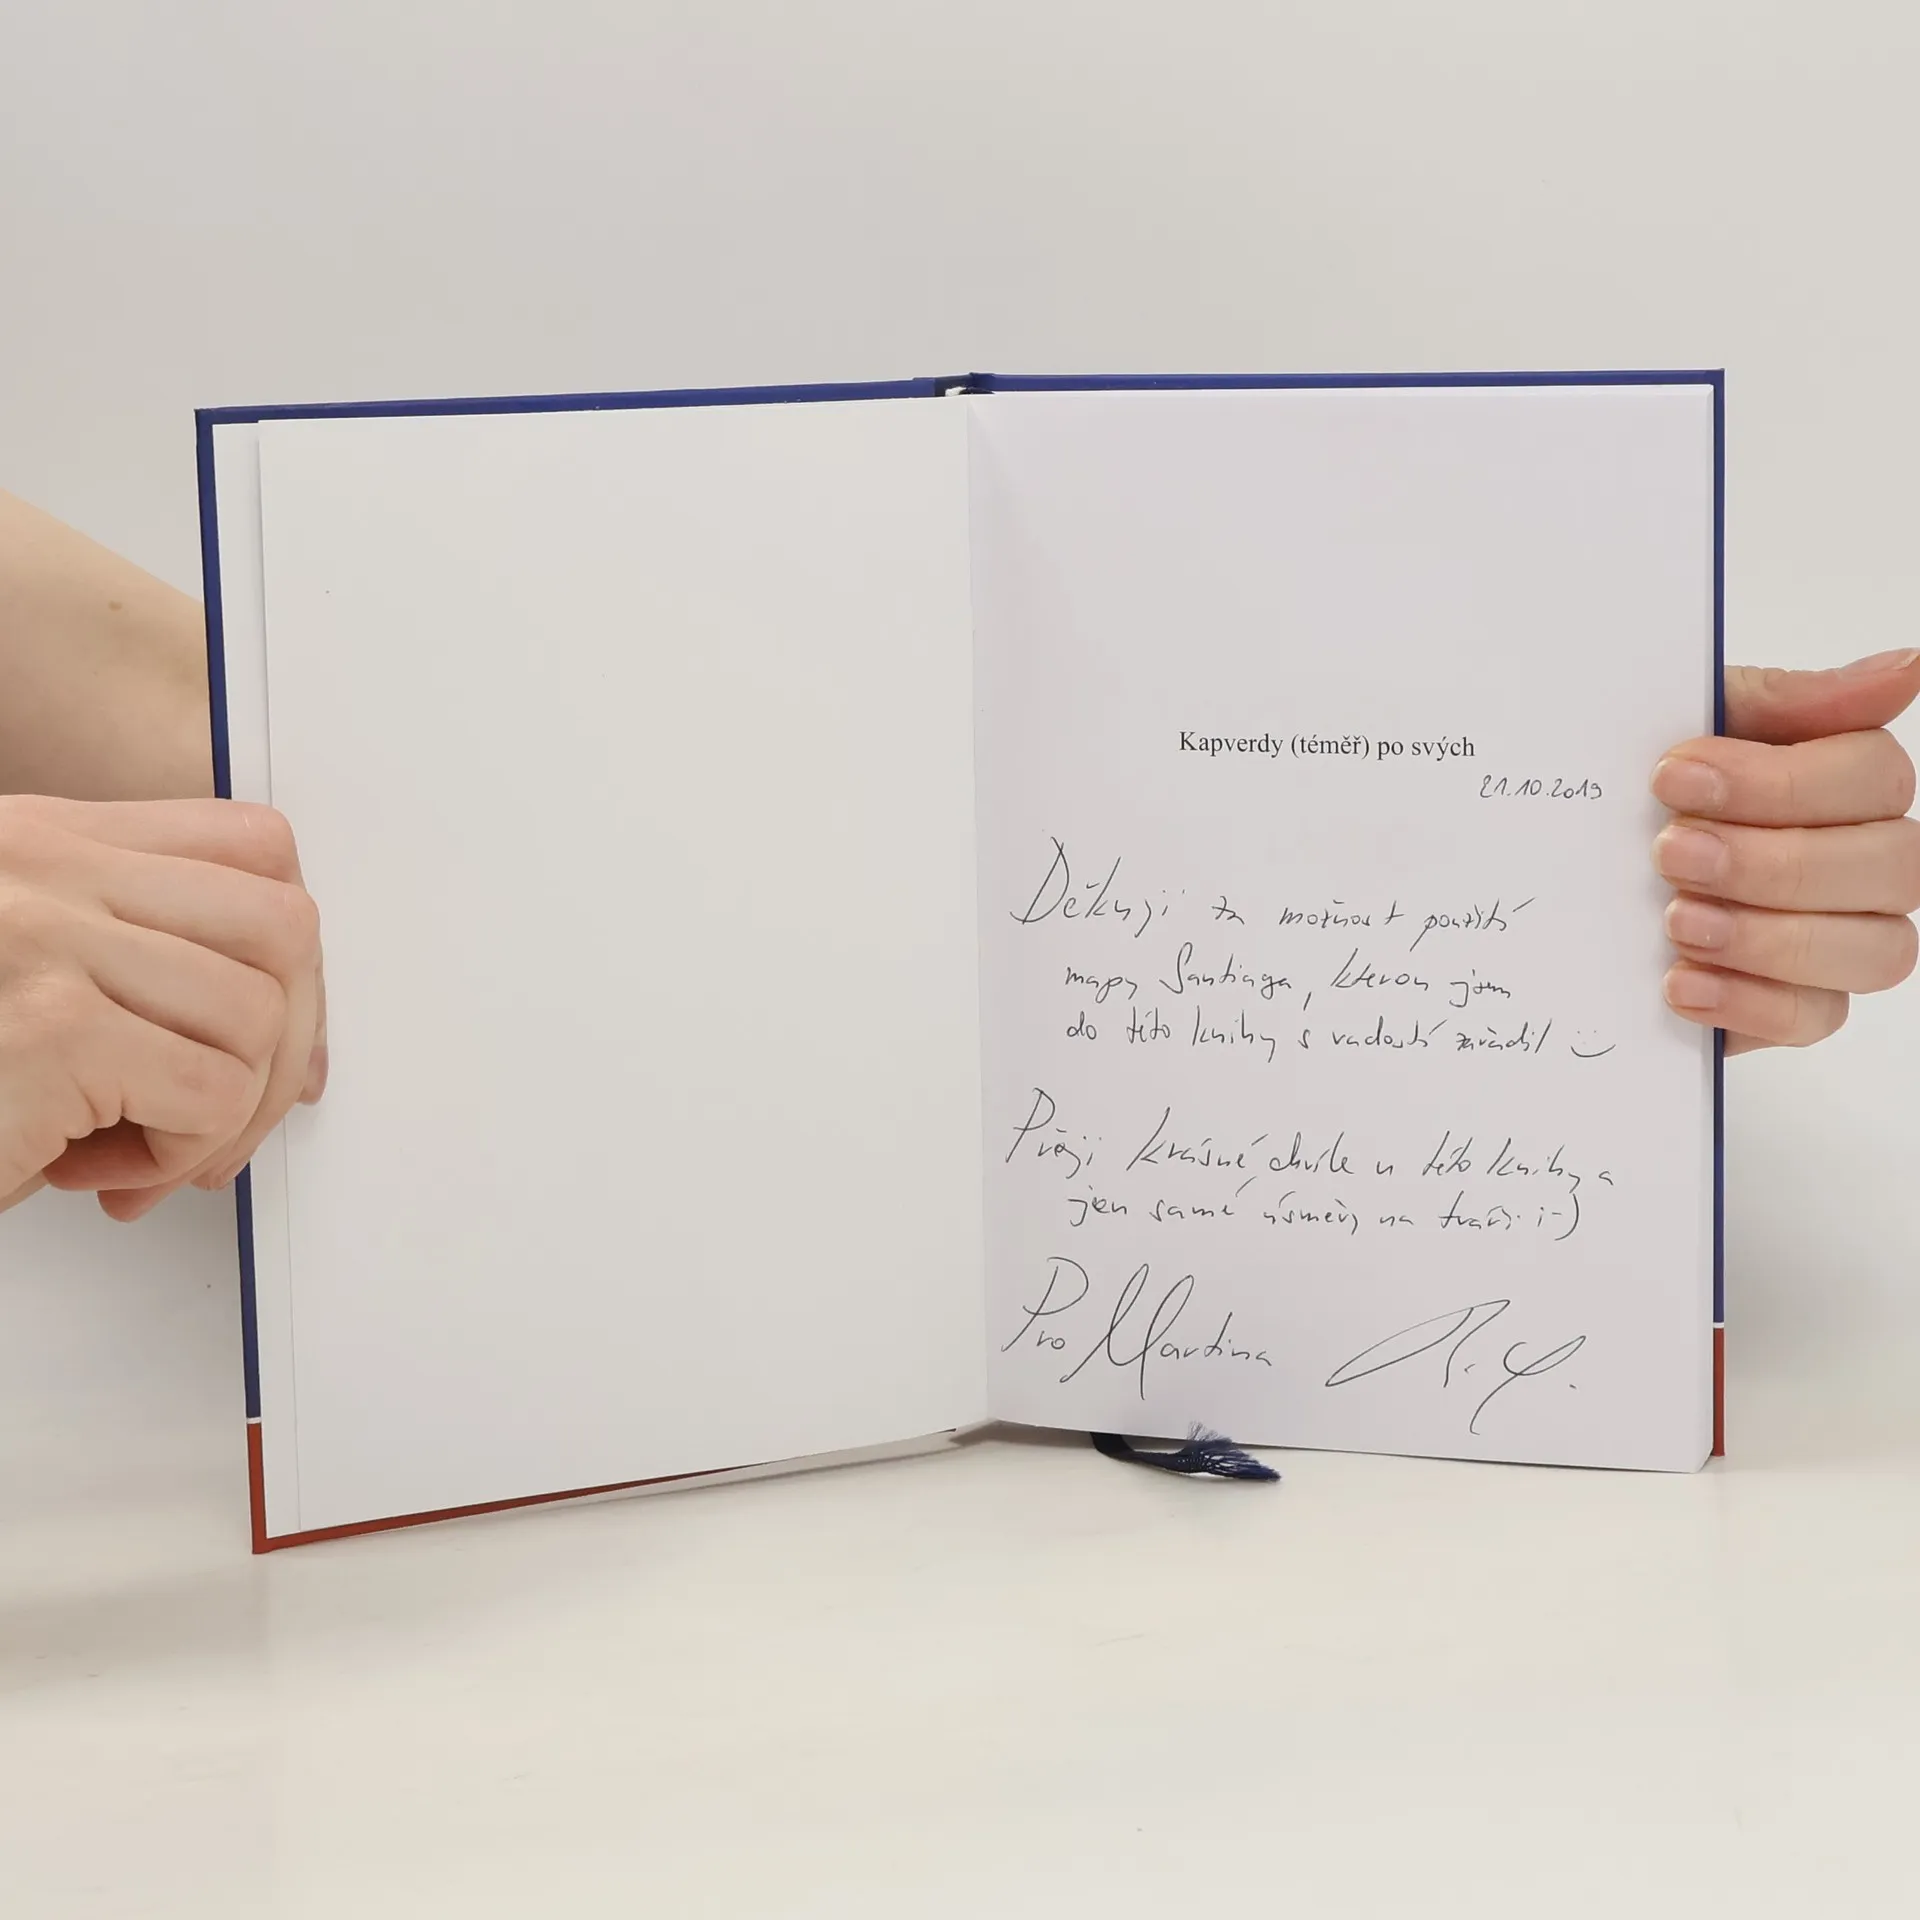 Kapverdy (téměř) po svých
21.10.2019
Děkuji za možnost použití
mapy Santiaga, kterou jsem
do této knihy s radostí zařadil :)
Přeji krásné chvíle u této knihy a
jen samé úsměvy na tváři. ;-)
Pro Martina